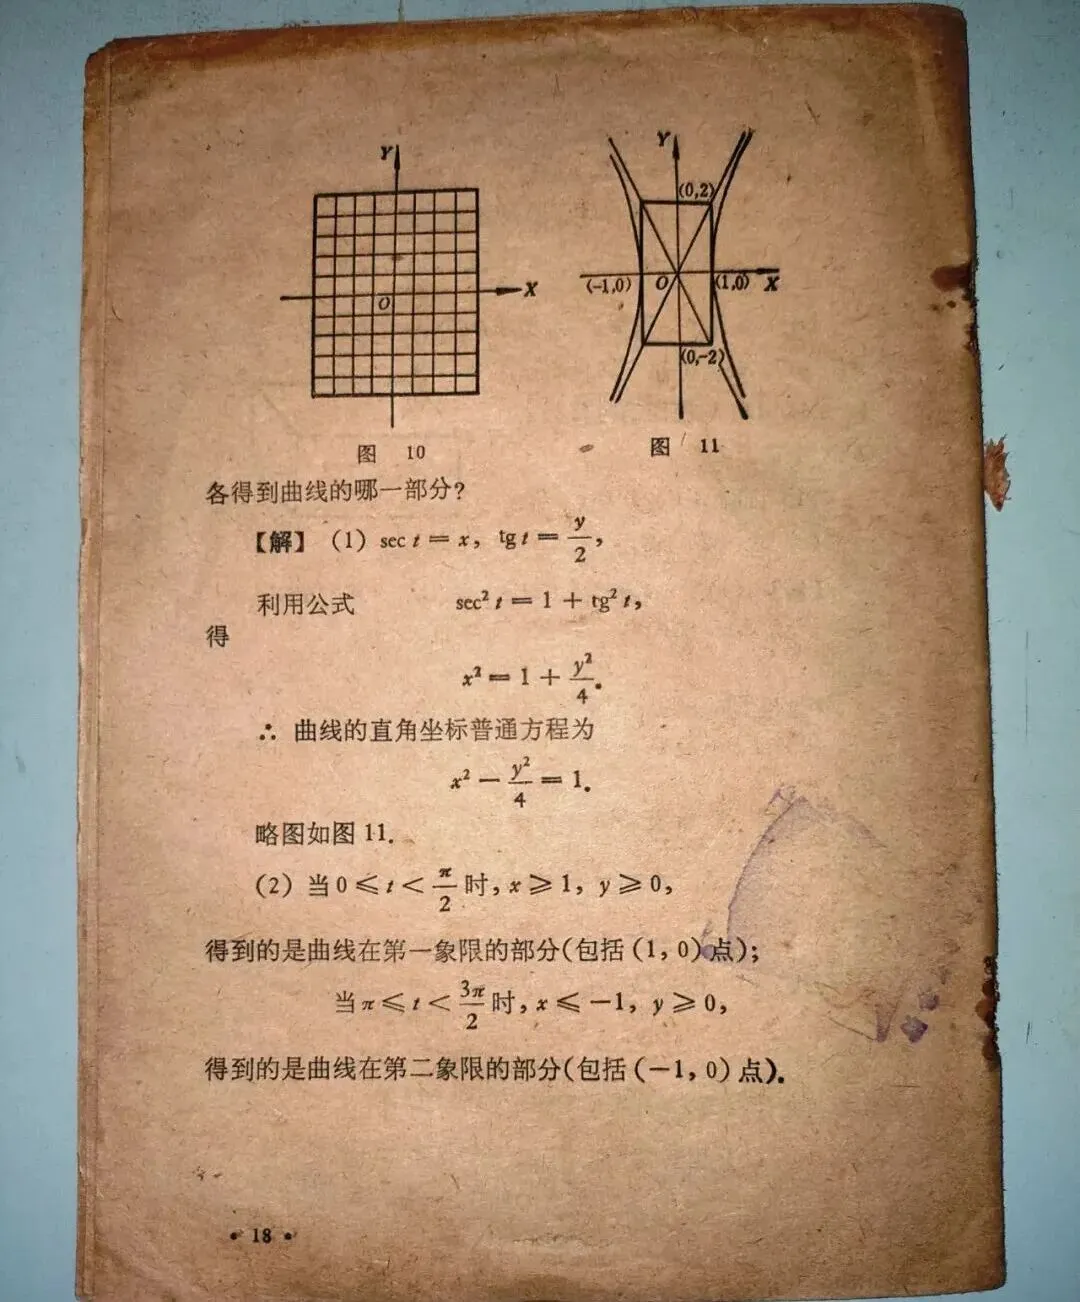 Y
X
O
图 10
Y
(0,2)
(-1,0) O (1,0) X
(0,-2)
图 11
各得到曲线的哪一部分?
【解】 (1) sec t = x, tg t = y/2,
利用公式 sec² t = 1 + tg² t,
得
x² = 1 + y²/4.
∴ 曲线的直角坐标普通方程为
x² - y²/4 = 1.
略图如图 11.
(2) 当 0 ≤ t < π/2 时, x ≥ 1, y ≥ 0,
得到的是曲线在第一象限的部分(包括 (1, 0) 点);
当 π ≤ t < 3π/2 时, x ≤ -1, y ≥ 0,
得到的是曲线在第二象限的部分(包括 (-1, 0) 点).
• 18 •